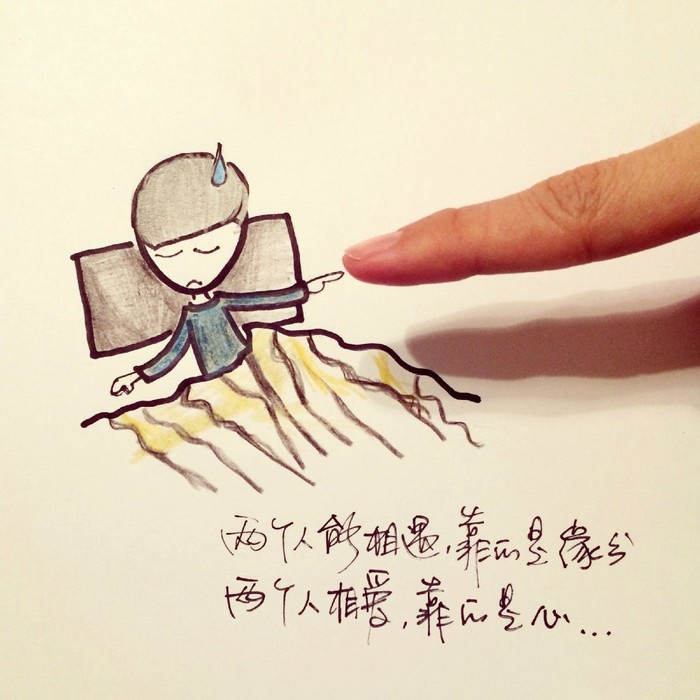 两个人能相遇,靠的是缘分
两个人相爱,靠的是心...